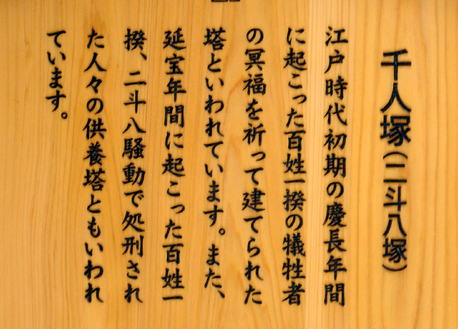 千人塚(二斗八塚)
江戸時代初期の慶長年間
に起こった百姓一揆の犠牲者
の冥福を祈って建てられた
塔といわれています。また、
延宝年間に起こった百姓一
揆、二斗八騒動で処刑され
た人々の供養塔ともいわれ
ています。